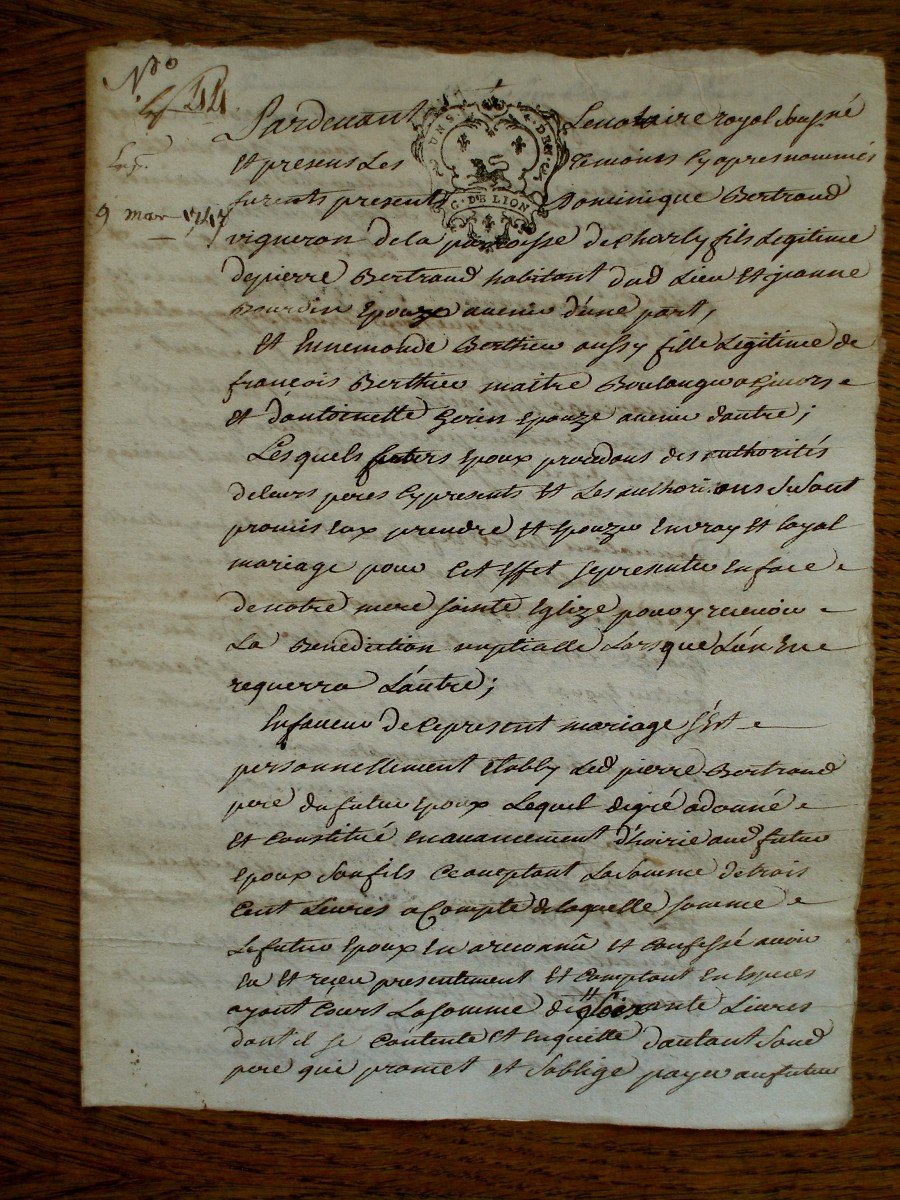 No
44
9 mars 1747
G. DE LION
Pardevant Le notaire royal sousigné
Et presens Les temoins cy apres nommés
furent presents Dominique Bertrand
vigneron de la paroisse de Charly fils Legitime
de pierre Bertrand habitant dud Lieu Et jeanne
Bourdin Epouze avenir d'une part,
Et Ennemonde Berthieu aussy fille Legitime de
françois Berthieu maitre Boulanger a Givors
Et d'antoinette Epouze avenir d'autre ;
Lesquels futurs Epoux procedans des authorités
de leurs peres cy presents Et Les authorisans Se sont
promis Eux prendre et Epouzer En vray Et loyal
mariage pour Cet Effet se presenter En face
de notre mere sainte Eglize pour y recevoir
La Benediction nuptialle Lorsque L'un En
requerra L'autre ;
En faveur de Ce present mariage s'Est
personnellement Etably Led pierre Bertrand
pere du futur Epoux Lequel de gré a donné
Et constitué en avancement d'hoirie aud futur
Epoux Son fils acceptant La Somme de trois
Cent Livres a Compte de laquelle somme
Le futur Epoux En a reconnû et confessé avoir
Eu Et reçeu presentement Et Comptant En Especes
ayant Cours La Somme de Livres
dont il se Contente Et En quitte d'autant Sond
pere qui promet et S'obblige payer au futur